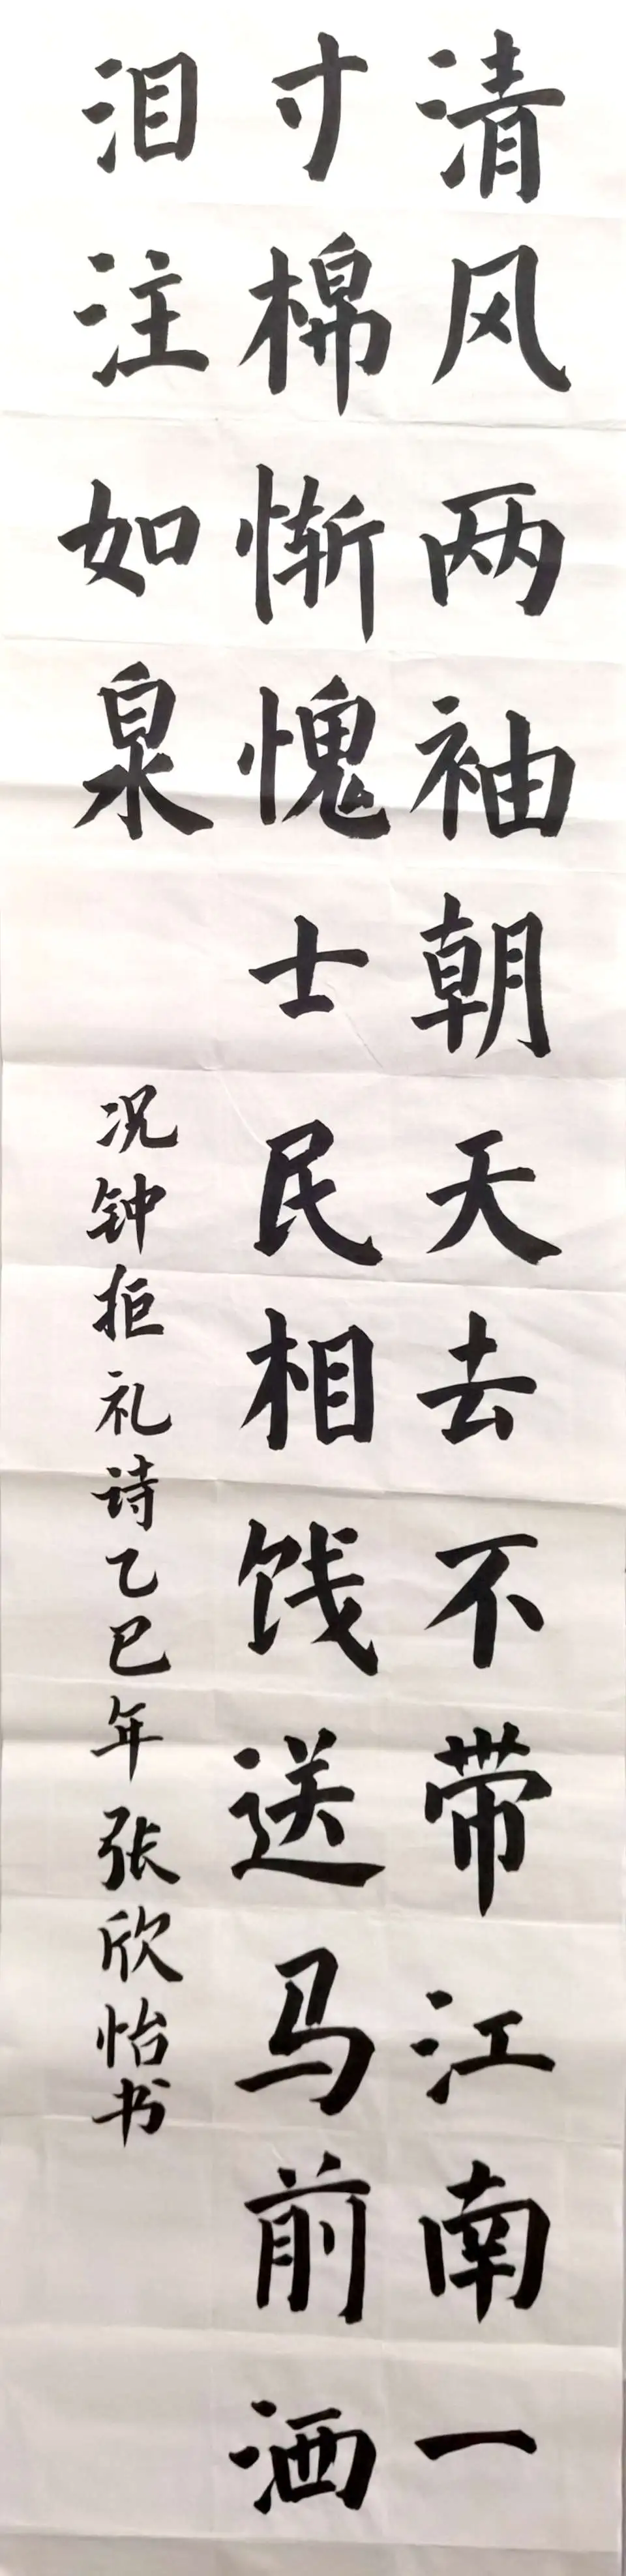 清风两袖朝天去不带江南一
寸棉惭愧士民相饯送马前洒
泪注如泉
况钟拒礼诗乙巳年张欣怡书